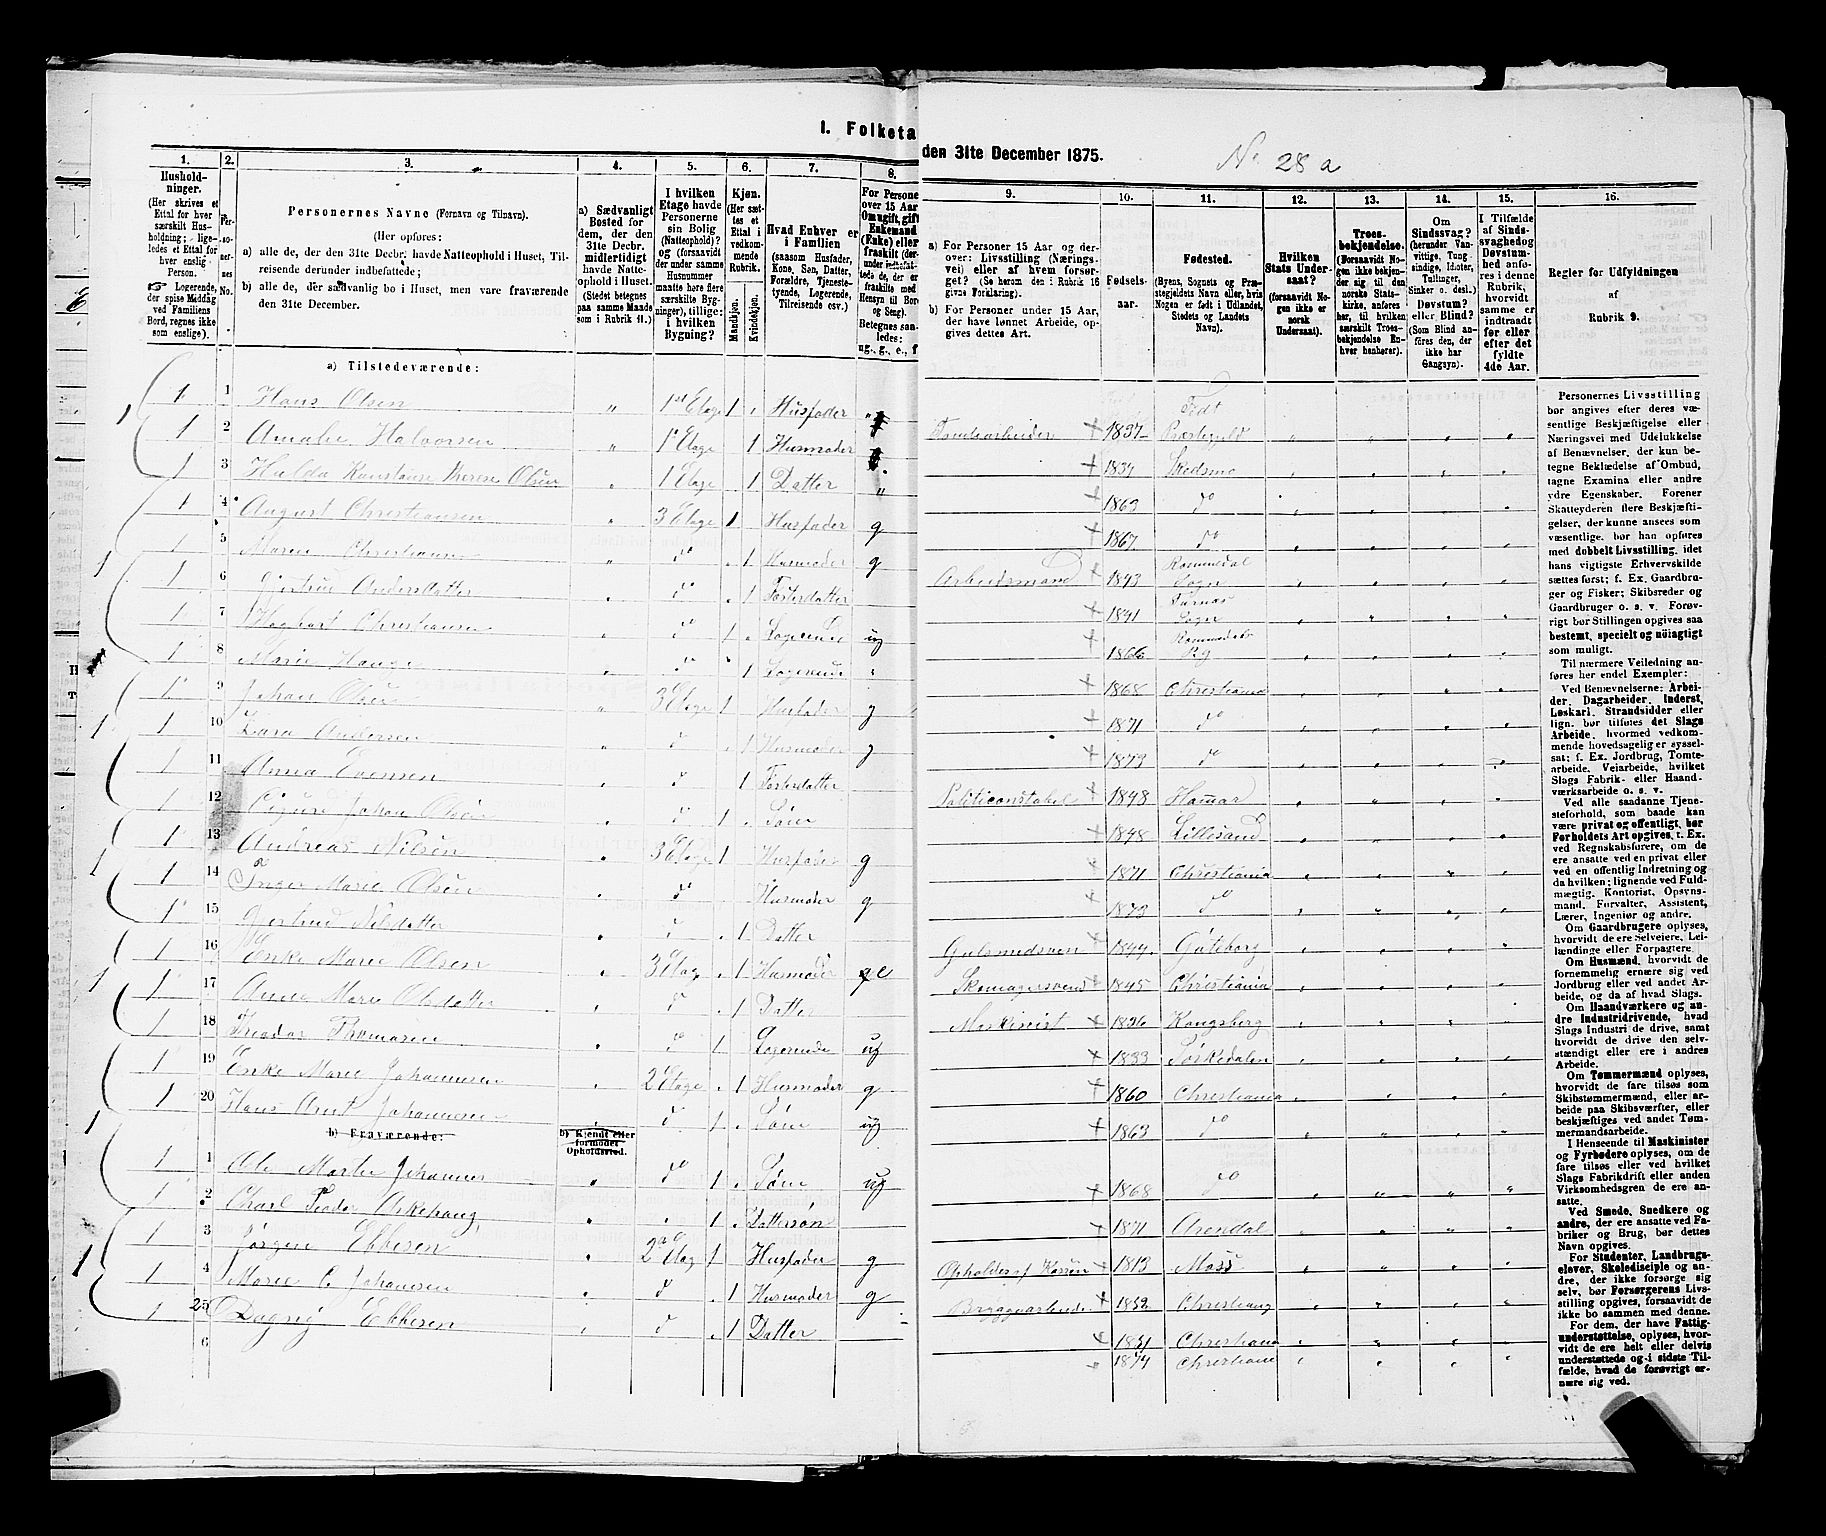 I. Folketa
den 31te December 1875.
No 28 a
1. 2. 3. 4. 5. 6. 7. 8. 9. 10. 11. 12. 13. 14. 15. 16.
Hushold-
ninger.
(Her skrives et
Ettal for hver
særskilt Hus-
holdning; lige-
ledes et Ettal for
hver enslig
Person.
Logerende,
der spise Middag
ved Familiens
Bord, regnes ikke
som enslige).
Per-
so-
ner-
nes
No.
Personernes Navne (Fornavn og Tilnavn).
(Her opføres:
a) alle de, der den 31te Decbr. havde Natteophold i Huset, Til-
reisende derunder indbefattede;
b) alle de, der sædvanlig bo i Huset, men vare fraværende
den 31te December.
a) Sædvanligt
Bosted for
dem, der den
31te Decbr.
midlertidigt
havde Natte-
ophold i Huset.
(Stedet betegnes
paa samme Maade
som i Rubrik 11.)
I hvilken
Etage havde
Personerne
sin Bolig
(Natteophold)?
og (forsaavidt
der under samme
Husnummer
maatte høre flere
særskilte Byg-
ninger), tillige:
i hvilken
Bygning?
Kjøn.
(Her sæt-
tes et
Ettal i
vedkom-
mende
Rubrik.
Mandkjøn.
Kvindekjøn.
Hvad Enhver er
i Familien
(saasom Husfader,
Kone, Søn, Datter,
Forældre, Tjeneste-
tyende, Logerende,
Tilreisende osv.)
For Persone
over 15 Aar
Om ugift, gift
Enkemand
(Enke) eller
fraskilt (der-
under indbefat-
tede de, der er
fraskilte med
Hensyn til Bord
og Seng).
Betegnes saa-
ledes:
ug., g., e., f.
a) For Personer 15 Aar og der-
over: Livsstilling (Nærings-
vei) eller af hvem forsør-
get? (Se herom den i Rubrik 16
givne Forklaring).
b) For Personer under 15 Aar,
der have lønnet Arbeide, op-
gives dettes Art.
Fødsels-
aar.
Fødested.
(Byens, Sognets og Præ-
stegjeldets Navn eller, hvis
Nogen er født i Udlandet,
Stedets og Landets
Navn).
Hvilken
Stats Under-
saat?
(forsaavidt No-
gen ikke er
norsk
Undersaat).
Troes-
bekjendelse.
(Forsaavidt No-
gen ikke bekjen-
der sig til den
norske Stats-
kirke, anføres
her, til hvilken
særskilt Troes-
bekjendelse En-
hver henhører).
Om
Sindssvag?
(herunder Van-
vittige, Tung-
sindige, Idioter,
Tullinger,
Sinker o. desl.)
Døvstum?
eller Blind?
(Som Blind an-
føres den, der
ikke har
Gangsyn).
I Tilfælde
af Sinds-
svaghed og
Døvstum-
hed anfø-
res i denne
Rubrik,
hvorvidt
samme er
indtraadt
før eller
efter det
fyldte
4de Aar.
Regler for Udfyldningen
af
Rubrik 9.
a) Tilstedeværende:
1 1 Hans Olsen 1st Etage 1 Husfader
1 2 Amalie Halvorsen 1 Etage 1 Husmoder
1 3 Hulda Konstanse Therese Olsen 1 Etage 1 Datter
1 4 August Christiansen 3 Etage 1 Husfader g
1 5 Maren Christiansen do 1 Husmoder g
1 6 Gjertrud Andersdatter do 1 Fosterdatter
1 7 Hagbart Christiansen do 1 Logerende ug
1 8 Marie Hauge do 1 Logerende
1 9 Johan Olsen 3 Etage 1 Husfader g
1 10 Lara Andersen do 1 Husmoder g
1 11 Anna Evensen do 1 Fosterdatter
1 12 Johan do 1 Søn
1 13 Andreas Nilsen 3 Etage 1 Husfader g
1 14 Inger Marie Olsen do 1 Husmoder g
1 15 Gjertrud Nilsdatter do 1 Datter
1 16 Enke Marie Olsen 3 Etag 1 Husmoder e
1 17 Anne Marie Olsdatter do 1 Datter
1 18 Teodor Thomasen do 1 Logerende ug
1 19 Enke Marie Johannesen 2 Etage 1 Husmoder g
1 20 Hans Arnt Johannesen do 1 Søn ug
b) Fraværende:
b) Kjendt eller
formodet
Opholdssted.
1 1 Ole Martin Johannes do 1 Søn ug
1 2 Charl Teodor Askehaug 1 Dattersøn
1 3 Jørgen Ebbesen 2 Etag 1 Husfader g
1 4 Marie C. Johansen do 1 Husmoder g
1 25 Dagny Ebbesen do 1 Datter
6
Tomtearbeider 1837 Fedt Præstegjeld
1837 Skedsmo
1863 do
1867 do
Arbeidsmand 1843 Rommedal Sogn
1841 Furnæs Sogn
1866 Rommedal Pg
1868 Christiania
1871 do
1873 do
Politiconstabel 1848 Hamar
1848 Lillesand
1871 Christiania
1873 do
Gulsmedsven 1844 Göteborg
Skomagersvend 1845 Christiania
Maskinist 1826 Kongsberg
1833 Sørkedalen
1860 Christiania
1863 do
1868 do
1871 Arendal
Opholdes af 1813 Moss
Bryggearbeider 1832 Christiania
1831 Christiania
1874 Christiania
Personernes Livsstilling
bør angives efter deres væ-
sentlige Beskjæftigelse eller
Næringsvei med Udelukkelse
af Benævnelser, der kun be-
tegne Beklædelse af Ombud,
tagne Examina eller andre
ydre Egenskaber. Forener
Skatteyderen flere Beskjæfti-
gelser, der kunne ansees som
væsentlige, bør han opføres
med dobbelt Livsstilling, idet
hans vigtigste Erhvervskilde
sættes først; f. Ex. Gaardbru-
ger og Fisker; Skibsreder og
Gaardbruger o. s. v. Forøv-
rigt bør Stillingen opgives saa
bestemt, specielt og nøiagtigt
som muligt.
Til nærmere Veiledning an-
føres her endel Exempler:
Ved Benævnelserne: Arbei-
der, Dagarbeider, Inderst,
Løskarl, Strandsidder eller
lign. bør tilføies det Slags
Arbeide, hvormed vedkom-
mende hovedsagelig er syssel-
sat; f. Ex. Jordbrug, Tomte-
arbeide, Veiarbeide, hvilket
Slags Fabrik- eller Haand-
værksarbeide o. s. v.
Ved alle saadanne Tjene-
steforhold, som baade kan
være privat og offentligt, bør
Forholdets Art opgives, t. Ex.
ved Regnskabsførere, om de
ere ansatte ved en privat eller
ved en offentlig Indretning og
da hvilken; lignende ved Fuld-
mægtig, Kontorist, Opsyns-
mand, Forvalter, Assistent,
Lærer, Ingeniør og andre.
Om Gaardbrugere oplyses,
hvorvidt de ere Selveiere, Lei-
lændinge eller Forpagtere.
Om Husmænd, hvorvidt de
fornemmelig ernære sig ved
Jordbrug eller ved andet Ar-
beide, og da af hvad Slags.
Om Haandværkere og an-
dre Industridrivende, hvad
Slags Industri de drive, samt
hvorvidt de drive den selv-
stændigt eller ere i andres
Arbeide.
Om Tømmermænd oplyses,
hvorvidt de fare tilsøs som
Skibstømmermænd, eller ar-
beide paa Skibsværfter, eller
beskjæftiges ved andet Tøm-
mermandsarbeide.
I Henseende til Maskinister
og Fyrbødere oplyses, om de
fare tilsøs eller ved hvilket
Slags Fabrikdrift eller anden
Virksomhedsgren de ere an-
satte.
Ved Smede, Snedkere og
andre, der ere ansatte ved Fa-
briker og Brug, bør dettes
Navn opgives.
For Studenter, Landbrugs-
elever, Skoledisciple og an-
dre, der ikke forsørge sig
selv, bør Forsørgerens Livs-
stilling opgives, forsaavidt de
ikke bo sammen med denne.
For dem, der have Fattig-
understøttelse, oplyses, hvor-
vidt de ere helt eller delvis
understøttede og i sidste Til-
fælde, hvad de forøvrigt er-
nære sig ved.